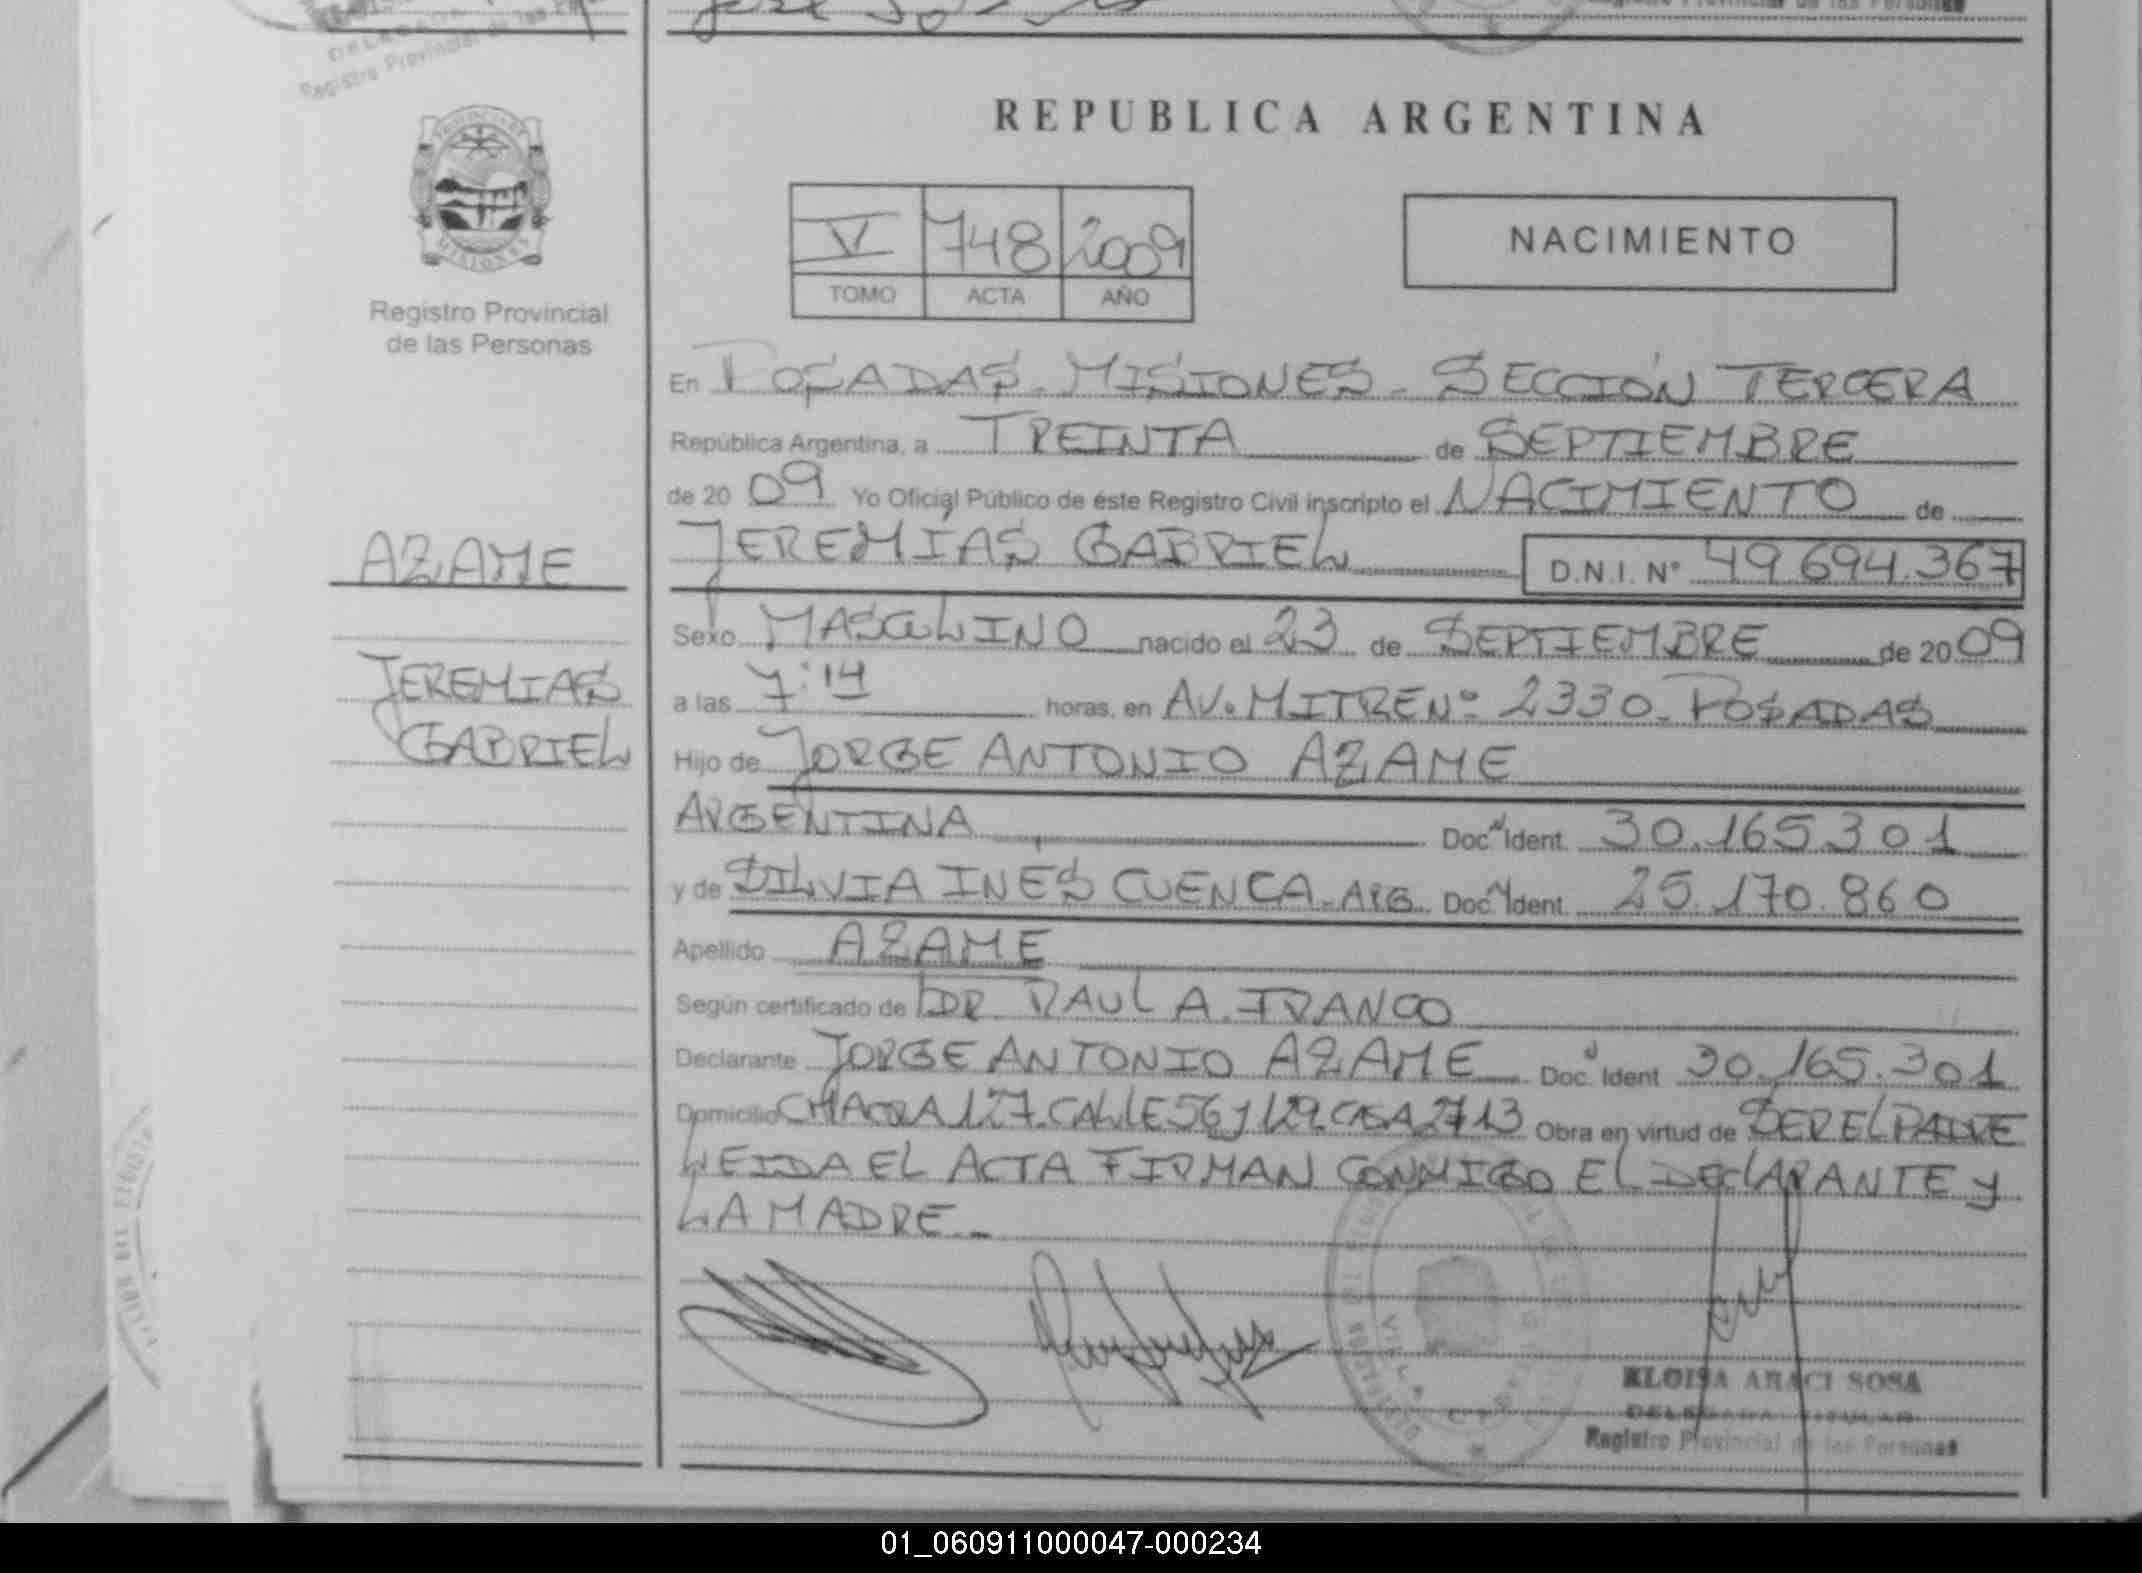 DELEGADA
Registro Provincial de las Personas
REPUBLICA ARGENTINA
PROVINCIA DE
MISIONES
Registro Provincial
de las Personas
V 748 2009
TOMO ACTA AÑO
NACIMIENTO
En POSADAS - MISIONES - SECCIÓN TERCERA
República Argentina, a TREINTA de SEPTIEMBRE
de 20 09 Yo Oficial Público de éste Registro Civil inscripto el NACIMIENTO de
AZAME
JEREMÍAS GABRIEL D.N.I. Nº 49.694.367
Sexo MASCULINO nacido el 23 de SEPTIEMBRE de 20 09
JEREMIAS
GABRIEL
a las 7:14 horas, en AV. MITRE Nº 2330 - POSADAS
Hijo de JORGE ANTONIO AZAME
ARGENTINA Doc. Ident. 30.165.301
y de SILVIA INÉS CUENCA - ARG. Doc. Ident. 25.170.860
Apellido AZAME
Según certificado de DR. RAUL A. FRANCO
Declarante JORGE ANTONIO AZAME Doc. Ident 30.165.301
Domicilio CHACRA 127. CALLE 56 y 129. CASA 2713 Obra en virtud de SER EL PADRE
LEIDA EL ACTA FIRMAN CONMIGO EL DECLARANTE y
LA MADRE.-
ELOISA ARACI SOSA
DELEGADA TITULAR
Registro Provincial de las Personas
01_060911000047-000234